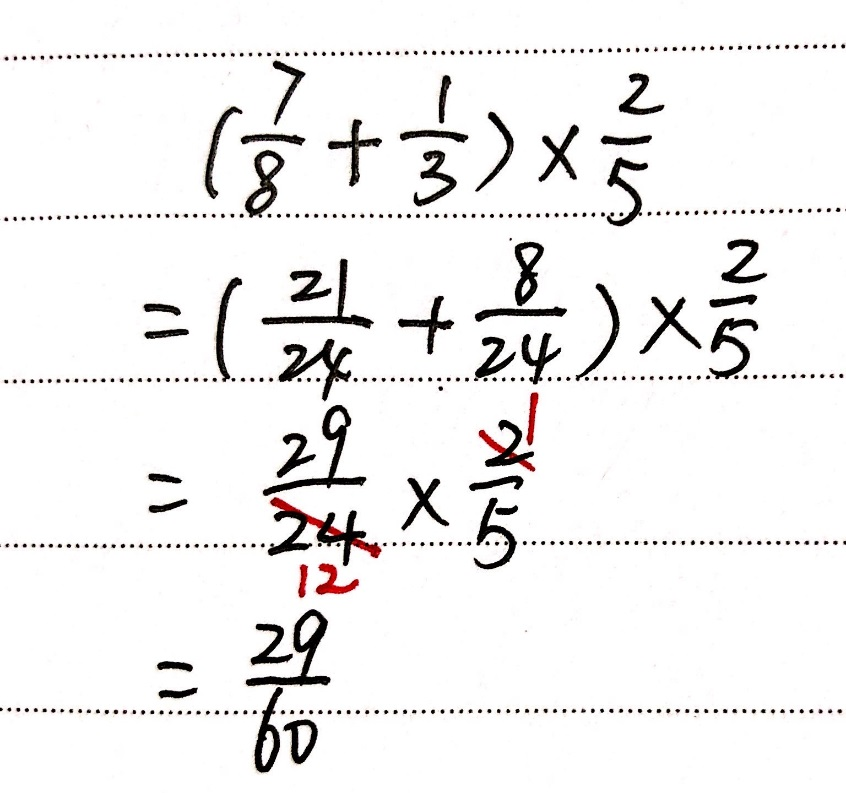 (7/8 + 1/3) × 2/5
= (21/24 + 8/24) × 2/5
= 29/24 × 2/5 1 12
= 29/60